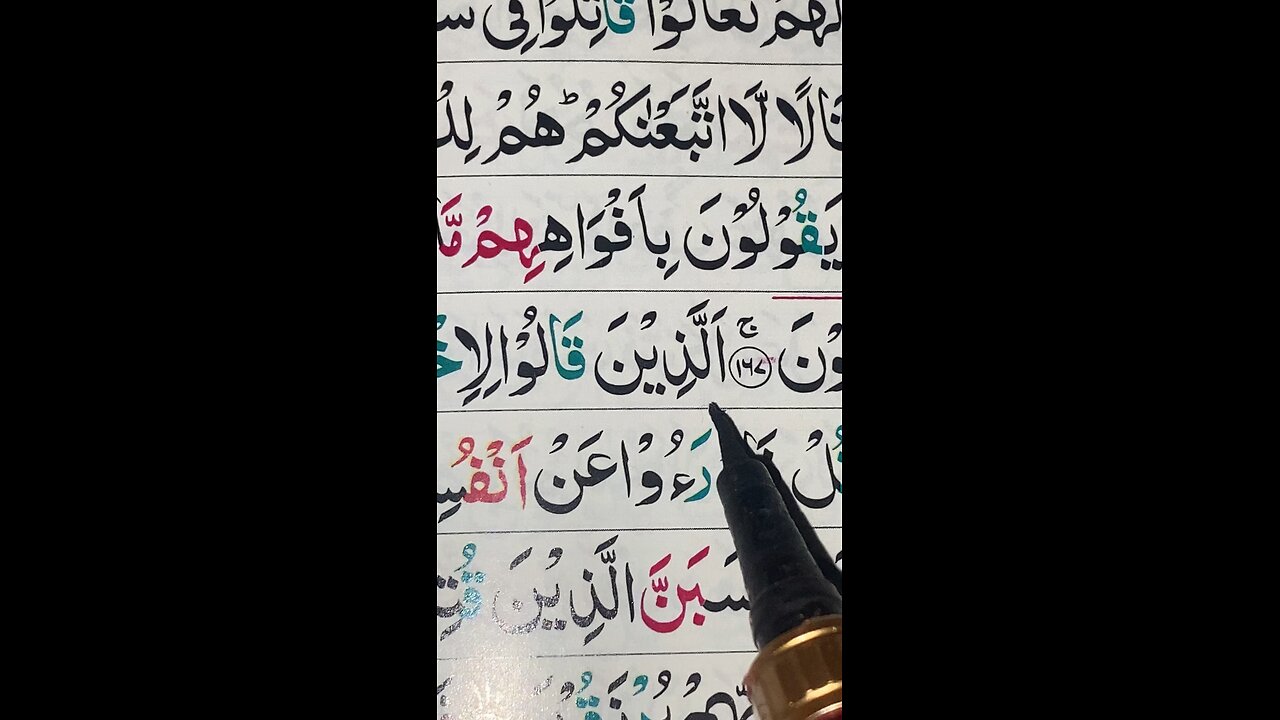 لَهُمْ تَعَالَوْا قَاتِلُوْا فِىْ
لَّا اتَّبَعْنٰكُمْ ؕ هُمْ
يَقُوْلُوْنَ بِاَفْوَاهِهِمْ مَّا
وْنَ ۚ ﴿۱۶۷﴾ اَلَّذِيْنَ قَالُوْا لِاِخْ
قُلْ فَادْرَءُوْا عَنْ اَنْفُسِ
سَبَنَّ الَّذِيْنَ قُتِ